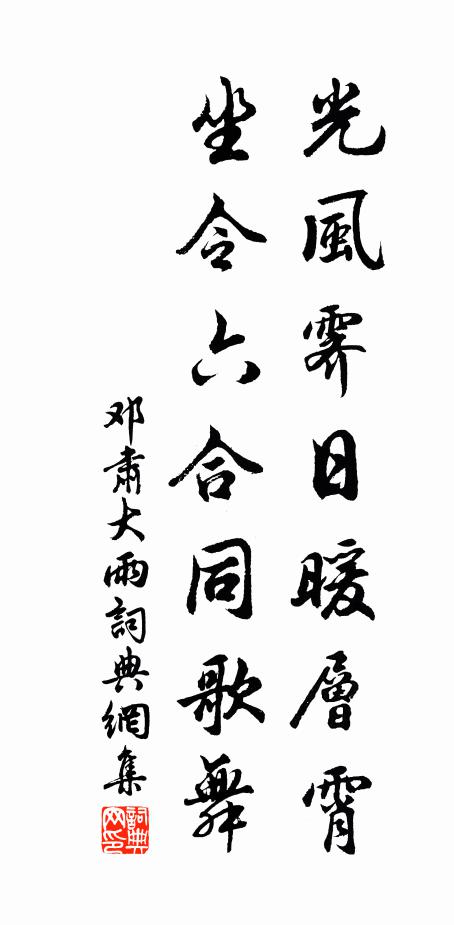 光風霽日暖層霄
坐令六合同歌舞
邓肅大雨詞典網集
詞典網印